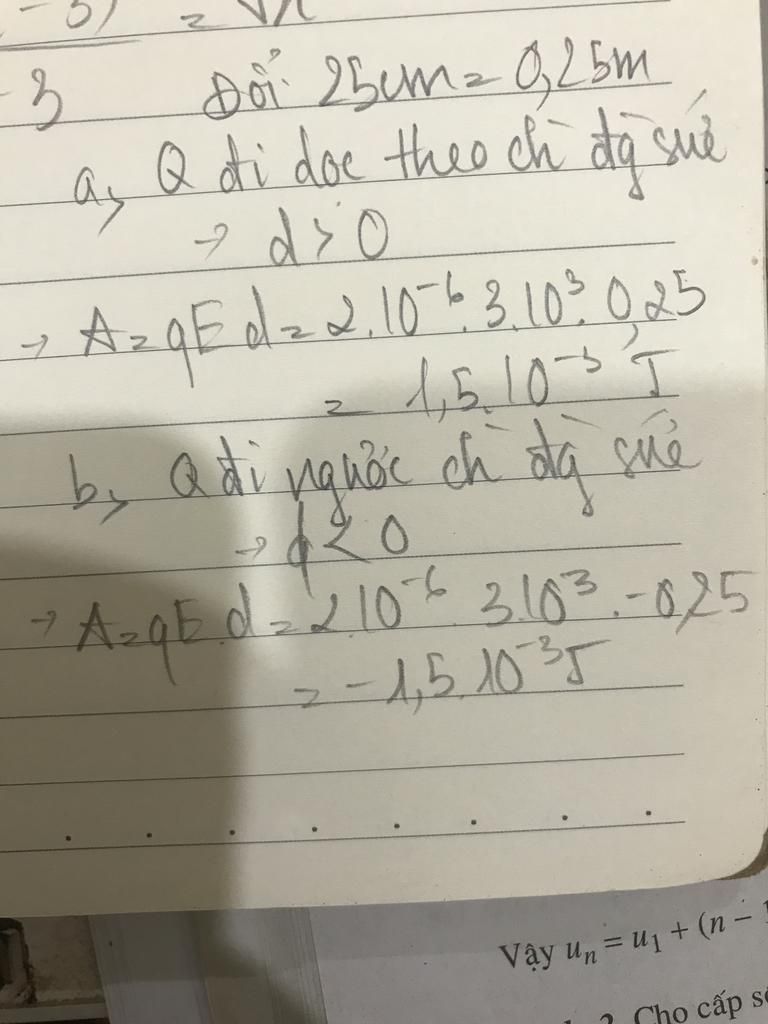 = √x
3
Đổi 25cm = 0,25m
a, Q đi dọc theo chì đg̀ sức
→ d > 0
→ A = qE d = 2.10⁻⁶. 3.10³. 0,25
= 1,5.10⁻³ J
b, Q đi ngước chì đg̀ sức
→ d < 0
→ A = qE.d = 2.10⁻⁶. 3.10³ . -0,25
= -1,5.10⁻³ J
Vậy uₙ = u₁ + (n –
2. Cho cấp số